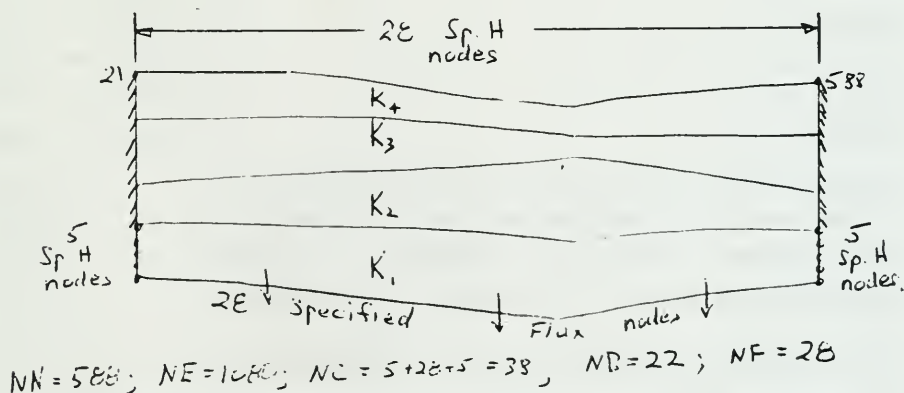 28 Sp. H
nodes
21
588
K4
K3
K2
K1
5
Sp. H
nodes
5
Sp. H
nodes.
28 Specified Flux nodes
NN = 588; NE = 1080; NC = 5+28+5 = 38, NB = 22; NF = 28